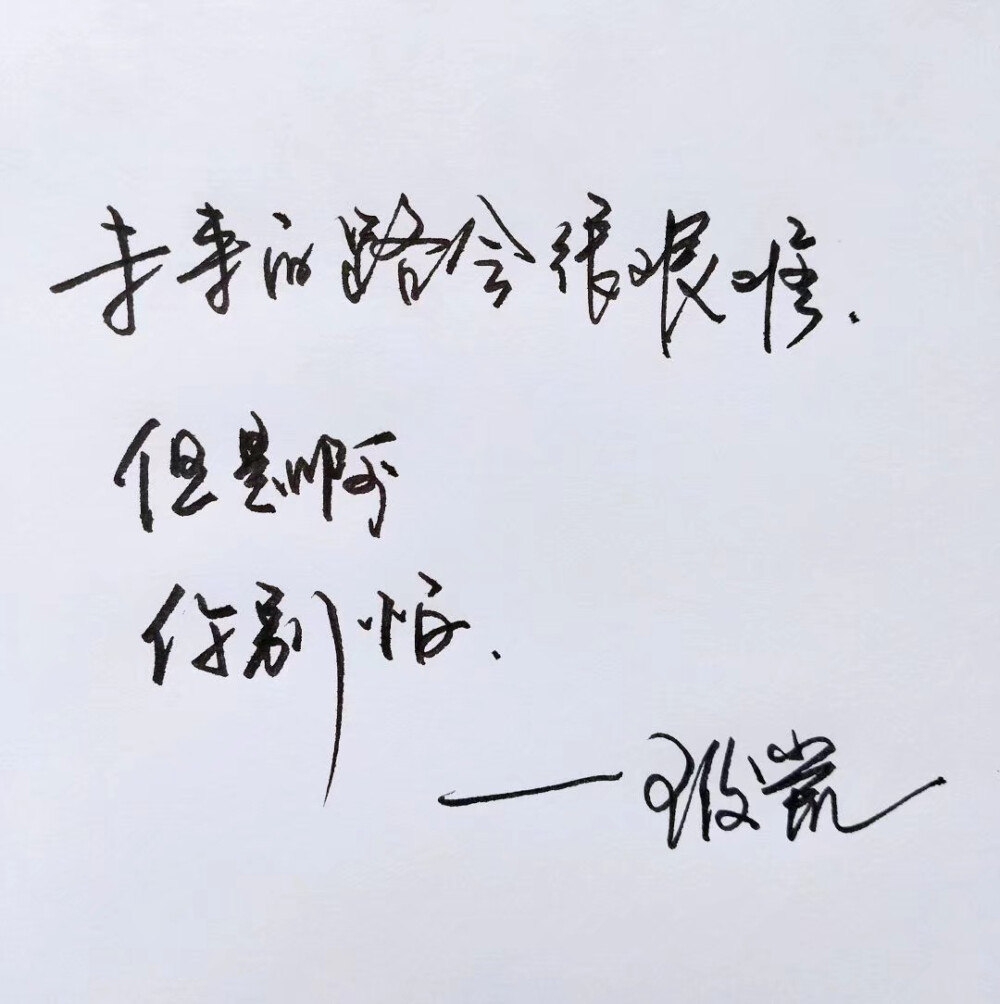 未来的路会很艰难.
但是啊
你别怕.
——王俊凯